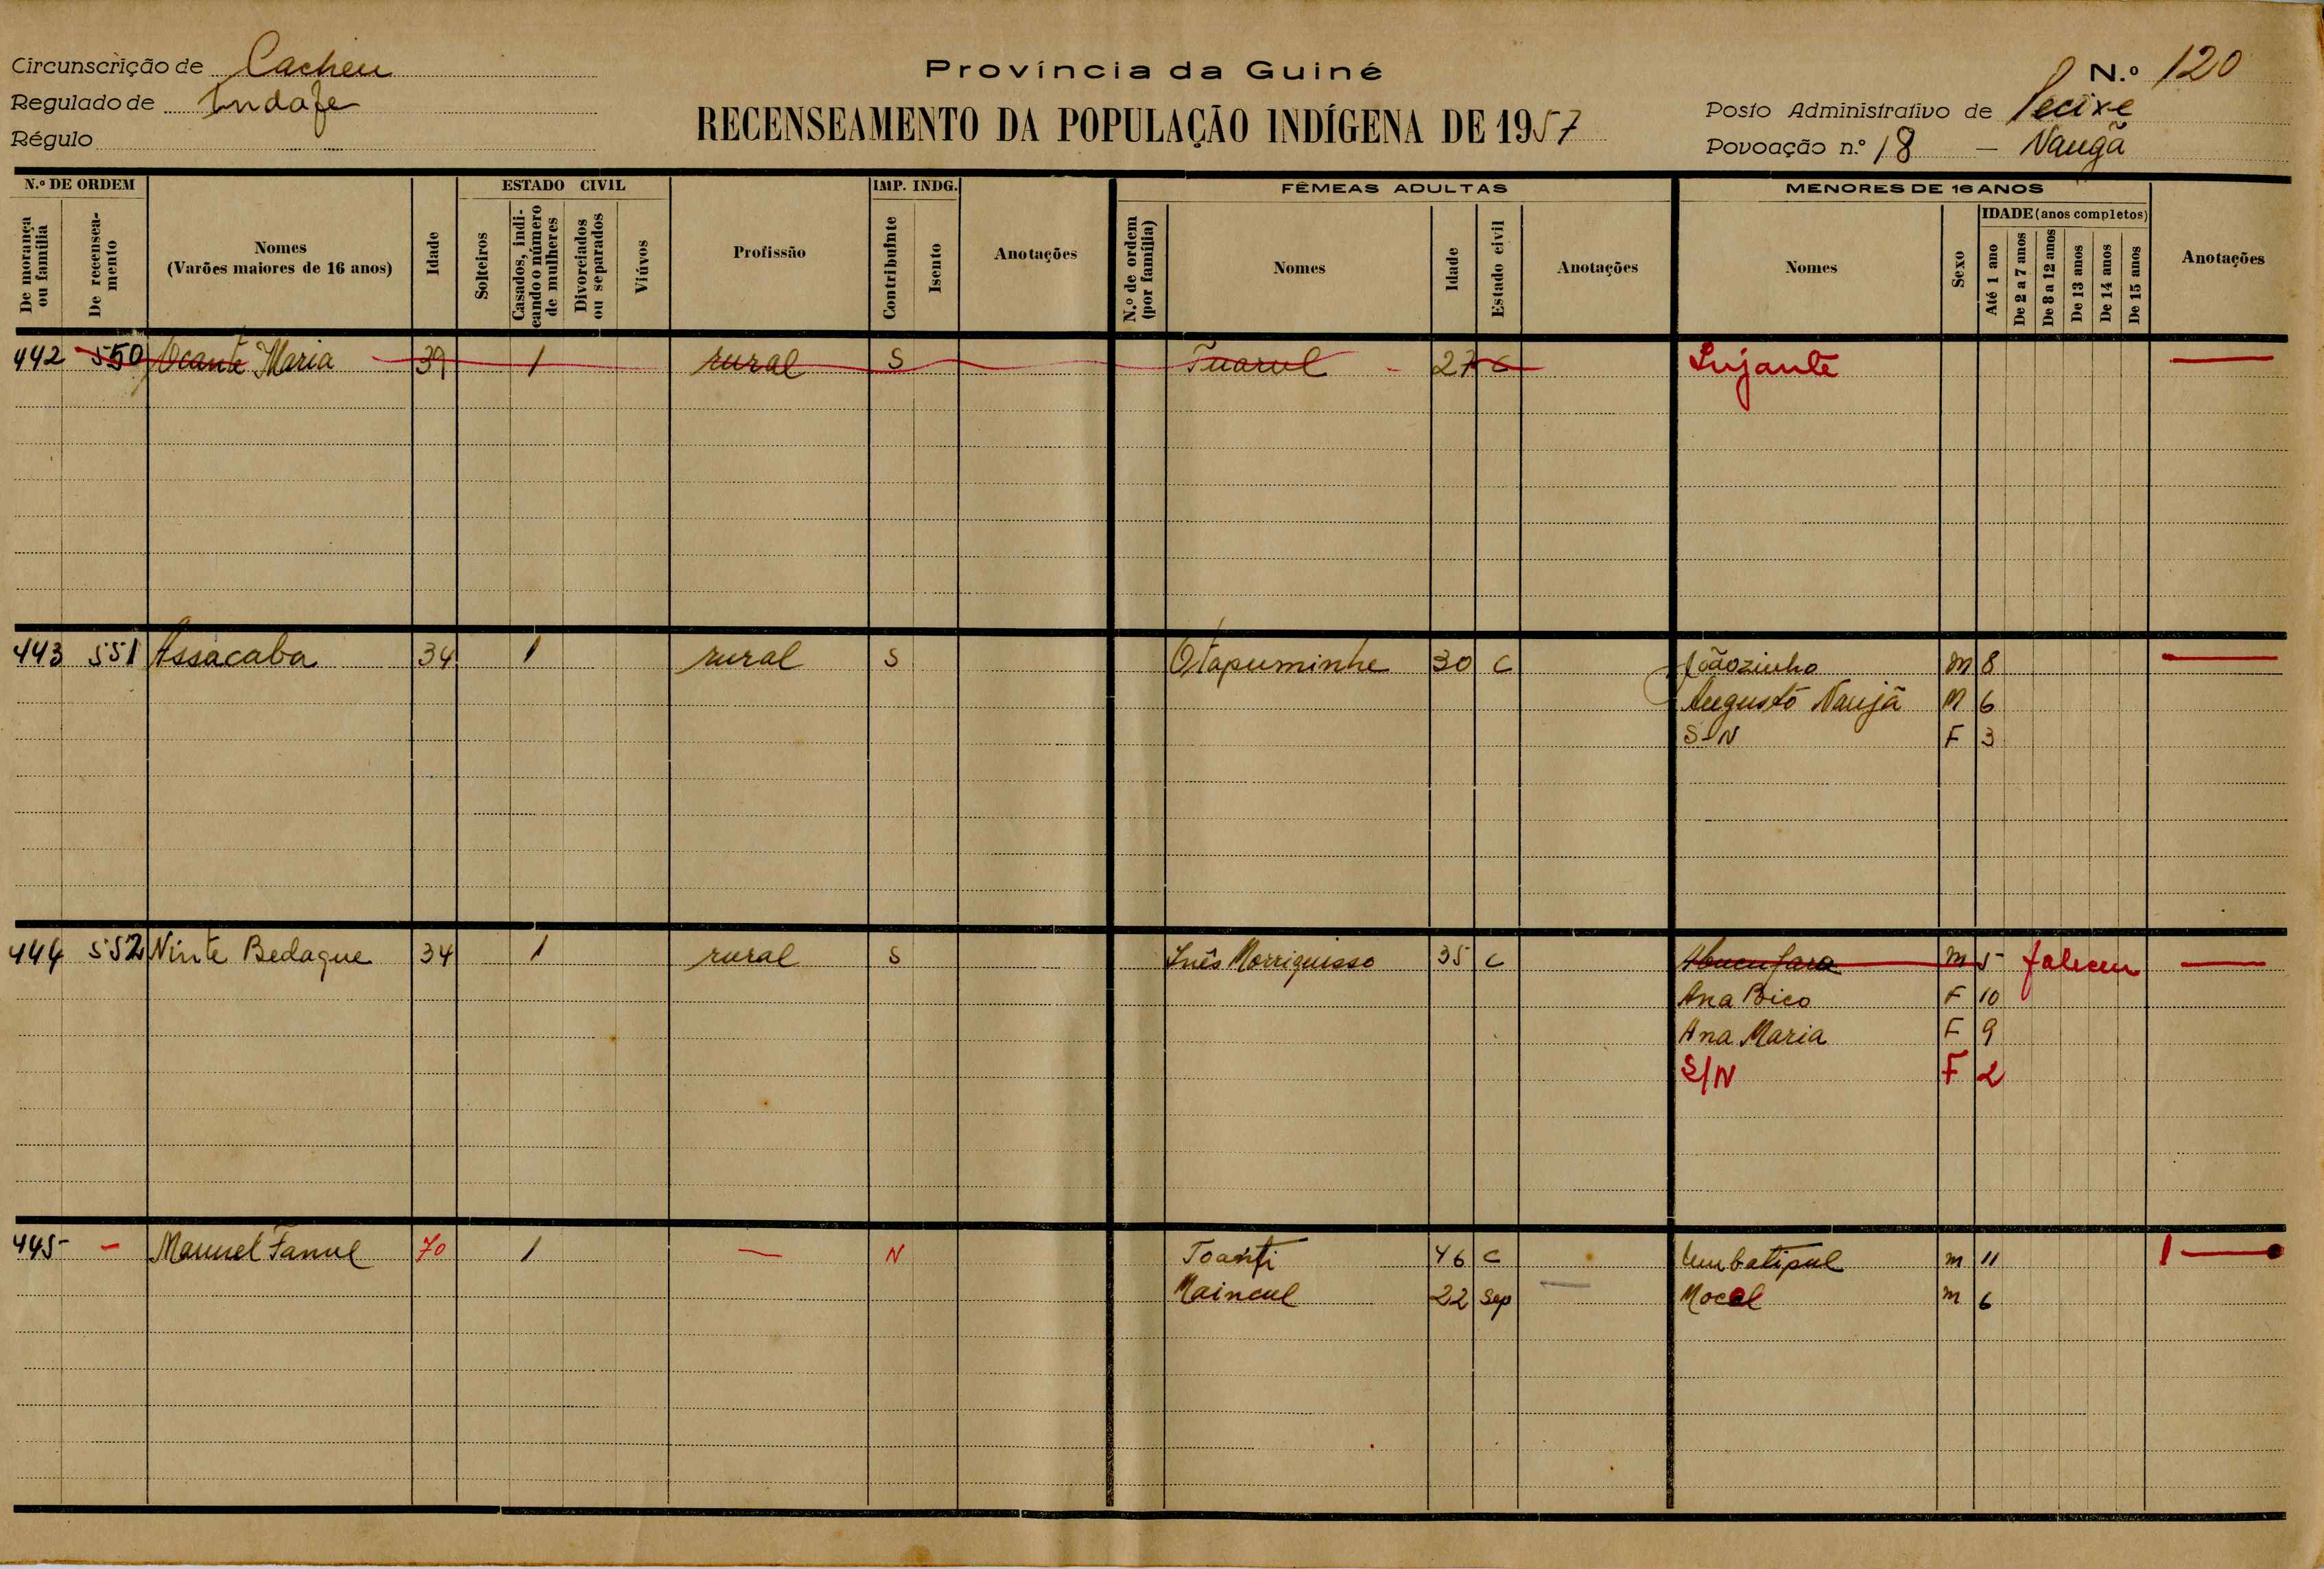 Circunscrição de Cacheu
Província da Guiné
N.º 120
Regulado de Indafe
Posto Administrativo de Pecixe
RECENSEAMENTO DA POPULAÇÃO INDÍGENA DE 1957
Régulo
Povoação n.º 18 — Naugã
N.º DE ORDEM
ESTADO CIVIL
IMP. INDG.
FÊMEAS ADULTAS
MENORES DE 16 ANOS
De morança ou família
De recenseamento
Nomes
(Varões maiores de 16 anos)
Idade
Solteiros
Casados, indicando o número de mulheres
Divorciados ou separados
Viúvos
Profissão
Contribuinte
Isento
Anotações
N.º de ordem (por família)
Nomes
Idade
Estado civil
Anotações
Nomes
Sexo
IDADE (anos completos)
Até 1 ano
De 2 a 7 anos
De 8 a 12 anos
De 13 anos
De 14 anos
De 15 anos
Anotações
442 550 Ocante Maria 39 1 rural S Tuarul 27 C Lujante
443 551 Assacaba 34 1 rural S Otapuminhe 30 C Joãozinho M 8
Augusto Naujã M 6
S-N F 3
444 552 Ninte Bedaque 34 1 rural S Inês Morriquisso 35 C M 5 faleceu
Ana Bico F 10
Ana Maria F 9
S/N F 2
445 - Manuel Fanul 70 1 — N 46 C Umbatipul m 11 1
Maincul 22 sep Mocal m 6